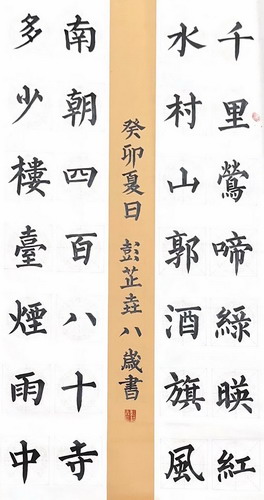 千里鶯啼綠暎紅
水村山郭酒旗風
南朝四百八十寺
多少樓臺煙雨中
癸卯夏日 彭芷垚八歲書